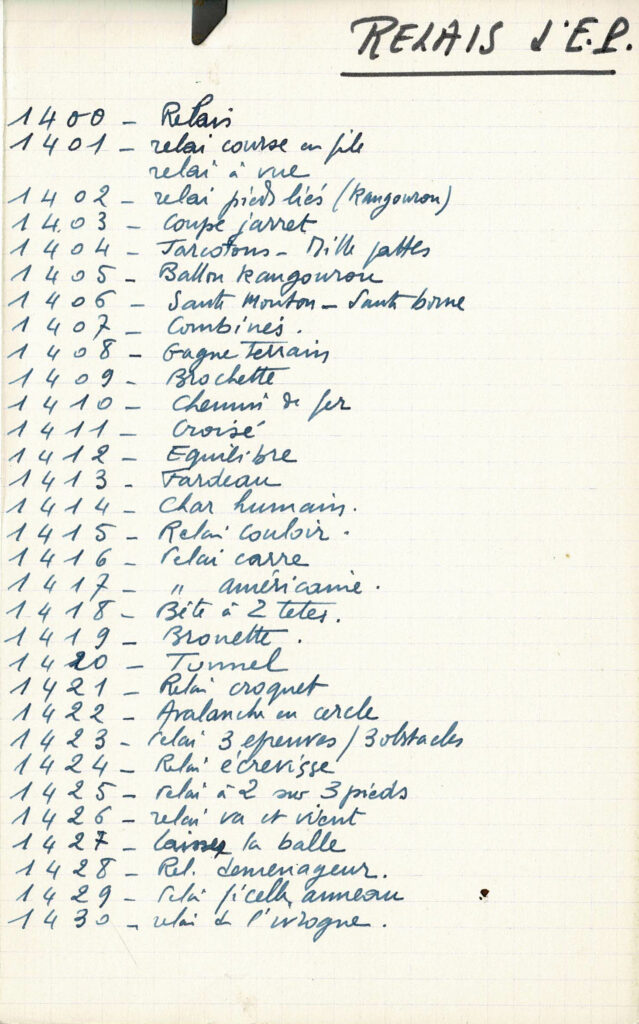 RELAIS d'E.P.
1400 - Relais
1401 - relai course en file
relai à vue
1402 - relai pieds liés (kangourou)
1403 - Coupe jarret
1404 - Mille pattes
1405 - Ballon kangourou
1406 - Saute Mouton - Saute borne
1407 - Combinés.
1408 - Gagne Terrain
1409 - Brochette
1410 - Chemin de fer
1411 - Croisé
1412 - Equilibre
1413 - Fardeau
1414 - Char humain.
1415 - Relai couloir.
1416 - relai carre
1417 - " américaine.
1418 - Bête à 2 tetes.
1419 - Brouette.
1420 - Tunnel
1421 - Relai croquet
1422 - Avalanche en cercle
1423 - relai 3 epreuves / 3 obstacles
1424 - Relai écrevisse
1425 - relai à 2 sur 3 pieds
1426 - relai va et vient
1427 - la balle
1428 - Rel. demenageur.
1429 - relai ficelle, anneau
1430 - relai de l'ivrogne.